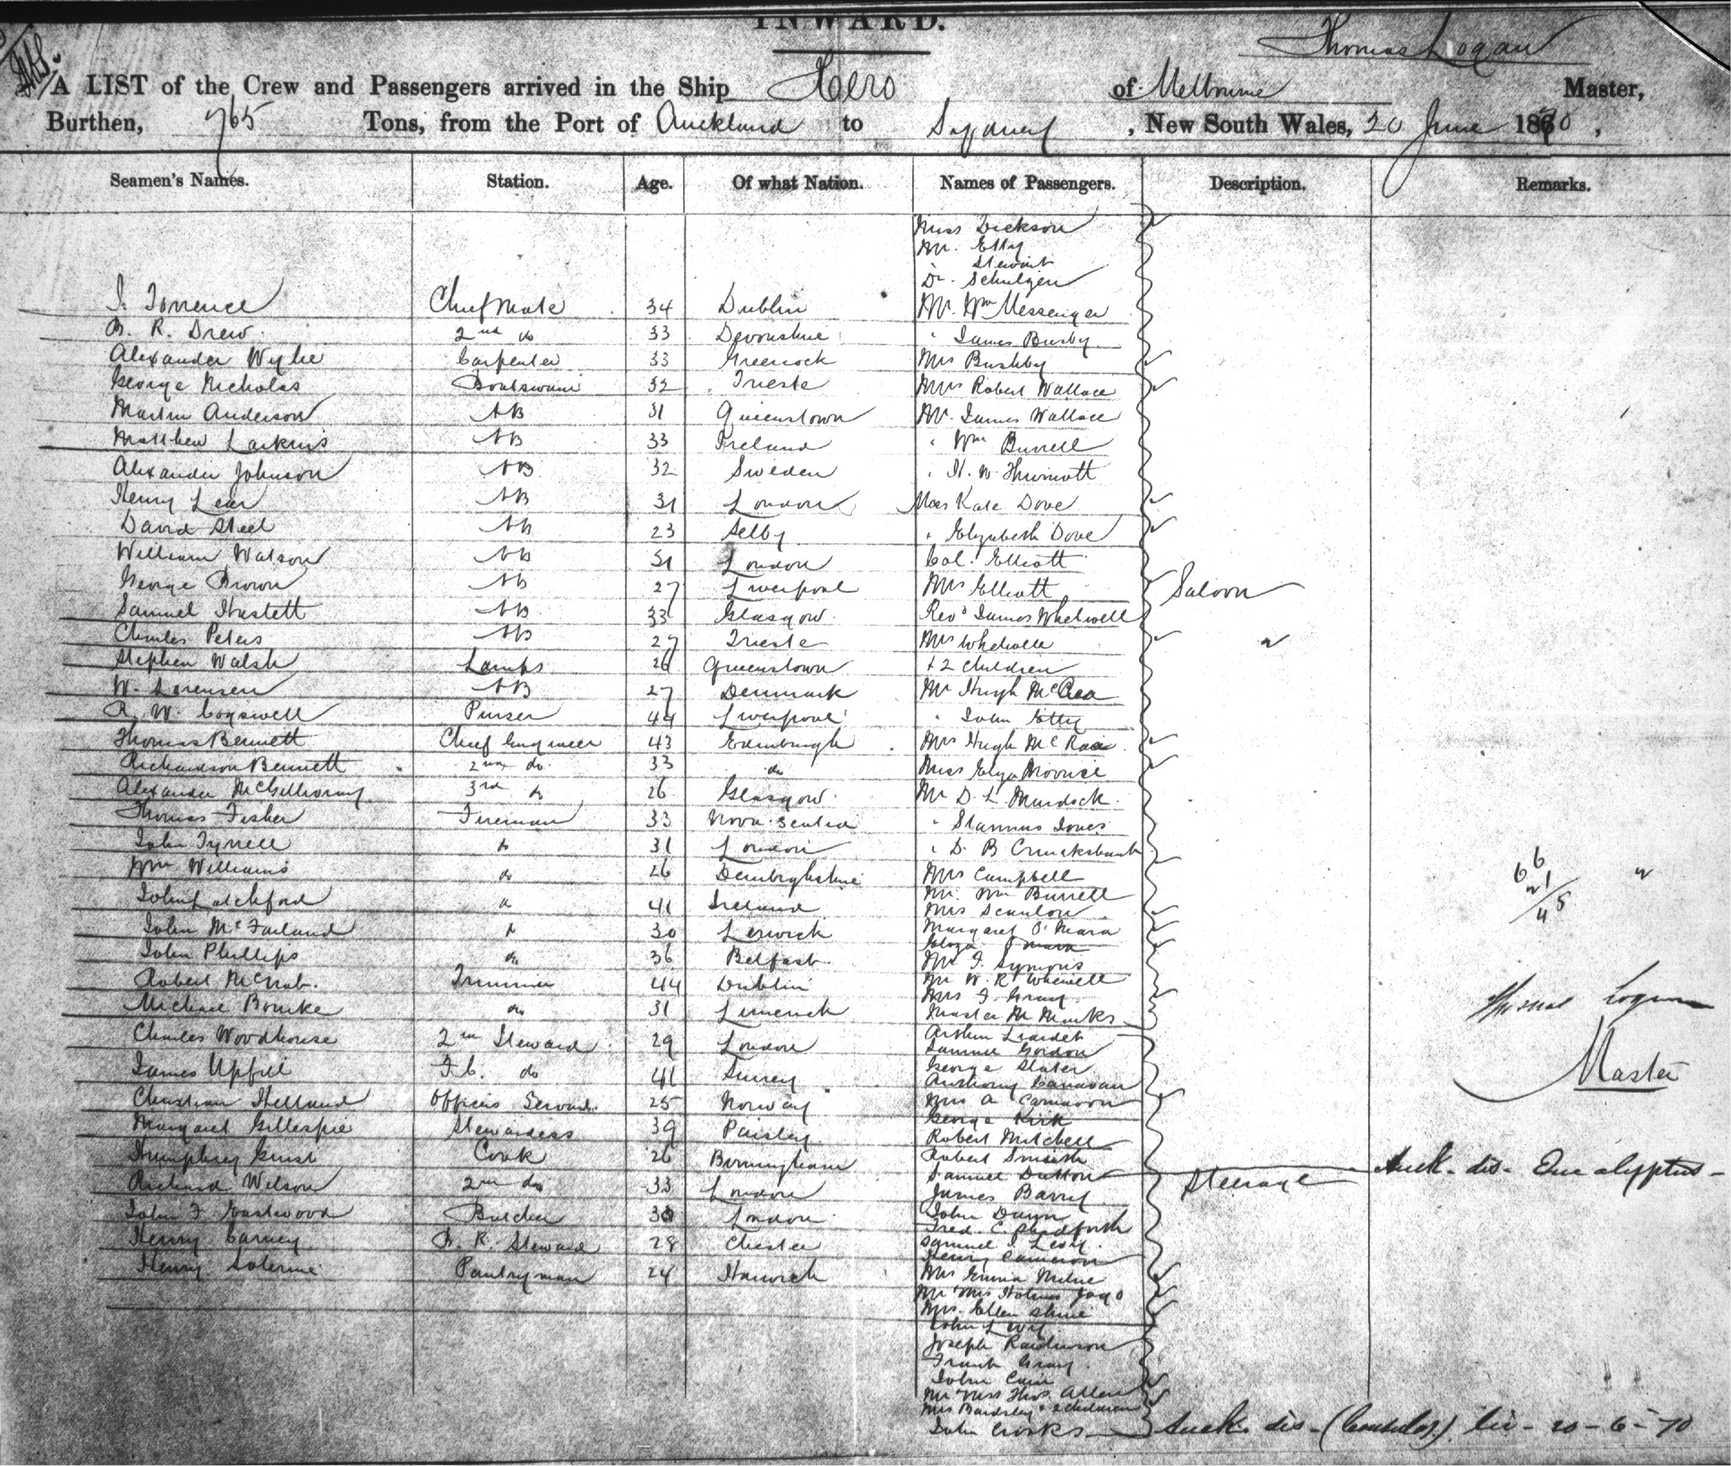 INWARD.
Thomas Logan
A LIST of the Crew and Passengers arrived in the Ship Hero of Melbourne Master,
Burthen, 765 Tons, from the Port of Auckland to Sydney, New South Wales, 20 June 1870,
Seamen's Names. Station. Age. Of what Nation. Names of Passengers. Description. Remarks.
Miss Dickson
Mr. Etty
Stewart
Dr. Schulgen
J. Torrence Chief Mate 34 Dublin Mr. Wm Messenger
B. R. Drew 2nd do 33 Devonshire " James Busby
Alexander Wylie Carpenter 33 Greenock Mrs Bushby
George Nicholas Boatswain 32 Trieste Mrs Robert Wallace
Martin Anderson AB 31 Queenstown Mr. James Wallace
Matthew Larkins AB 33 Ireland " Wm Burrell
Alexander Johnson AB 32 Sweden " H. W.
Henry Lear AB 31 London Miss Kate Dove
David Steel AB 23 Selby " Elizabeth Dove
William Watson AB 31 London Col. Elliott
George Brown AB 27 Liverpool Mrs Elliott Saloon
Samuel Haslett AB 33 Glasgow Revd James Whewell
Charles Peters AB 27 Trieste Mrs Whewell "
Stephen Walsh Lamps 26 Queenstown + 2 children
W. Lorensen AB 27 Denmark Mr Hugh McRea
R. W. Cogswell Purser 44 Liverpool " John Etty
Thomas Bennett Chief Engineer 43 Edinburgh Mrs Hugh McRae
Richardson Bennett 2nd do. 33 do Miss Eliza
Alexander McGillivray 3rd do 26 Glasgow Mr D. L. Murdock
Thomas Fisher Fireman 33 Nova Scotia " Stammus Jones
John Tyrrell do 31 London " D. B Cruickshank
Wm Williams do 26 Denbighshire Mrs Campbell
Mr. Wm Burrell
John Latchford do 41 Ireland Mrs Scanlon
John McFarland do 30 Lerwick Margaret O'Mara
Eliza O'Mara
John Phillips do 36 Belfast Mr F. Symons
Robert McNab. Trimmer 44 Dublin Mr W. R. Whewell
Mrs F. Gray
Michael Bourke do 31 Limerick Master M Marks
Charles Woodhouse 2nd Steward 29 London Arthur Liardet
Samuel Gordon
James Upfill F.C. do 41 Surrey George Slater
Anthony Canavan
Christian Helland Officers Servant 25 Norway Mrs A Carnavon
Margaret Gillespie Stewardess 39 Paisley George Kirk
Robert Mitchell
Humphrey Guist Cook 26 Birmingham Robert Smith
Richard Wilson 2nd do 33 London Samuel Dutton Steerage
James Barry
John F Eastwood Butcher 30 London John Dunn
Fred. C. Shadforth
Henry Carney B. R. Steward 28 Chester Samuel I. Levy.
Henry Cameron
Henry Solerine Pantryman 24 Harwich Mrs Emma Milne
Mr & Mrs Jago
Mrs. Ellen Shine
John Levy
Joseph Rawlinson
Frank Gray
John Cain
Mr & Mrs Thos. Allen
Mrs Bardsley + 2 children
John Crooks
66
21
45
Thomas Logan
Master
Auck. dis- Eucalyptus-
Auck. dis- (Consulos.) liv- 20-6-70